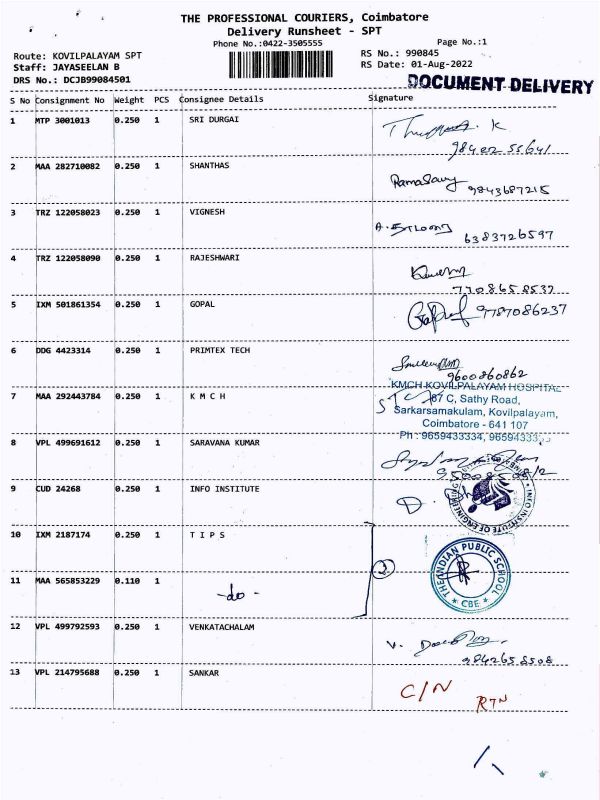 THE PROFESSIONAL COURIERS, Coimbatore
Delivery Runsheet - SPT
Phone No.:0422-3505555
Page No.:1
Route: KOVILPALAYAM SPT
RS No.: 990845
Staff: JAYASEELAN B
RS Date: 01-Aug-2022
DRS No.: DCJB99084501
DOCUMENT DELIVERY
S No Consignment No Weight PCS Consignee Details Signature
1 MTP 3001013 0.250 1 SRI DURGAI
2 MAA 282710082 0.250 1 SHANTHAS
Ramasamy
9843687215
3 TRZ 122058023 0.250 1 VIGNESH
6383726597
4 TRZ 122058090 0.250 1 RAJESHWARI
7708658537
5 IXM 501861354 0.250 1 GOPAL
9787086237
6 DDG 4423314 0.250 1 PRIMTEX TECH
9600860862
KMCH KOVILPALAYAM HOSPITAL
7 MAA 292443784 0.250 1 K M C H
87 C, Sathy Road,
Sarkarsamakulam, Kovilpalayam,
Coimbatore - 641 107
Ph : 9659433334,
8 VPL 499691612 0.250 1 SARAVANA KUMAR
9 CUD 24268 0.250 1 INFO INSTITUTE
INFO INSTITUTE OF ENGINEERING
10 IXM 2187174 0.250 1 T I P S
2
THE INDIAN PUBLIC SCHOOL
CBE
11 MAA 565853229 0.110 1 -do-
12 VPL 499792593 0.250 1 VENKATACHALAM
9842658508
13 VPL 214795688 0.250 1 SANKAR
C/N RTN